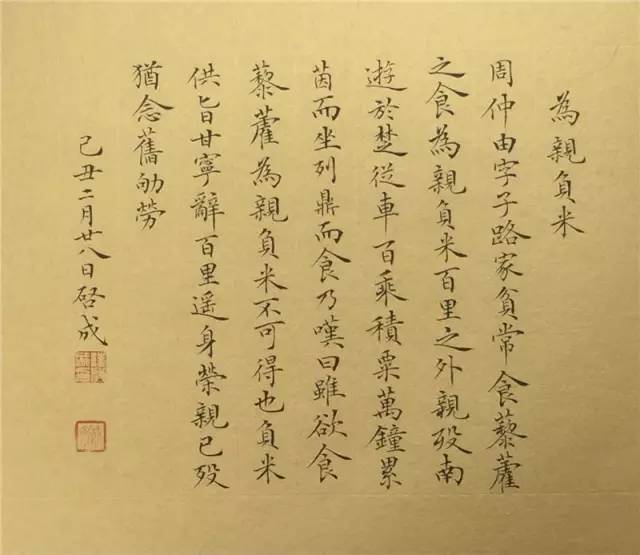 為親負米
周仲由字子路家貧常食藜藿
之食為親負米百里之外親歿南
遊於楚從車百乘積粟萬鐘累
茵而坐列鼎而食乃嘆曰雖欲食
藜藿為親負米不可得也負米
供旨甘寧辭百里遥身榮親已歿
猶念舊劬勞
己丑二月廿八日啓成